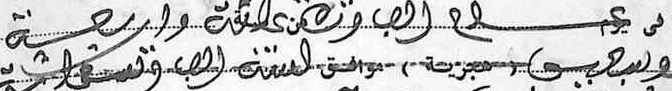 في عام الف وثلاثمائة واربعة
وسبعين (هجرية) موافق لسنة الف وتسعمائة